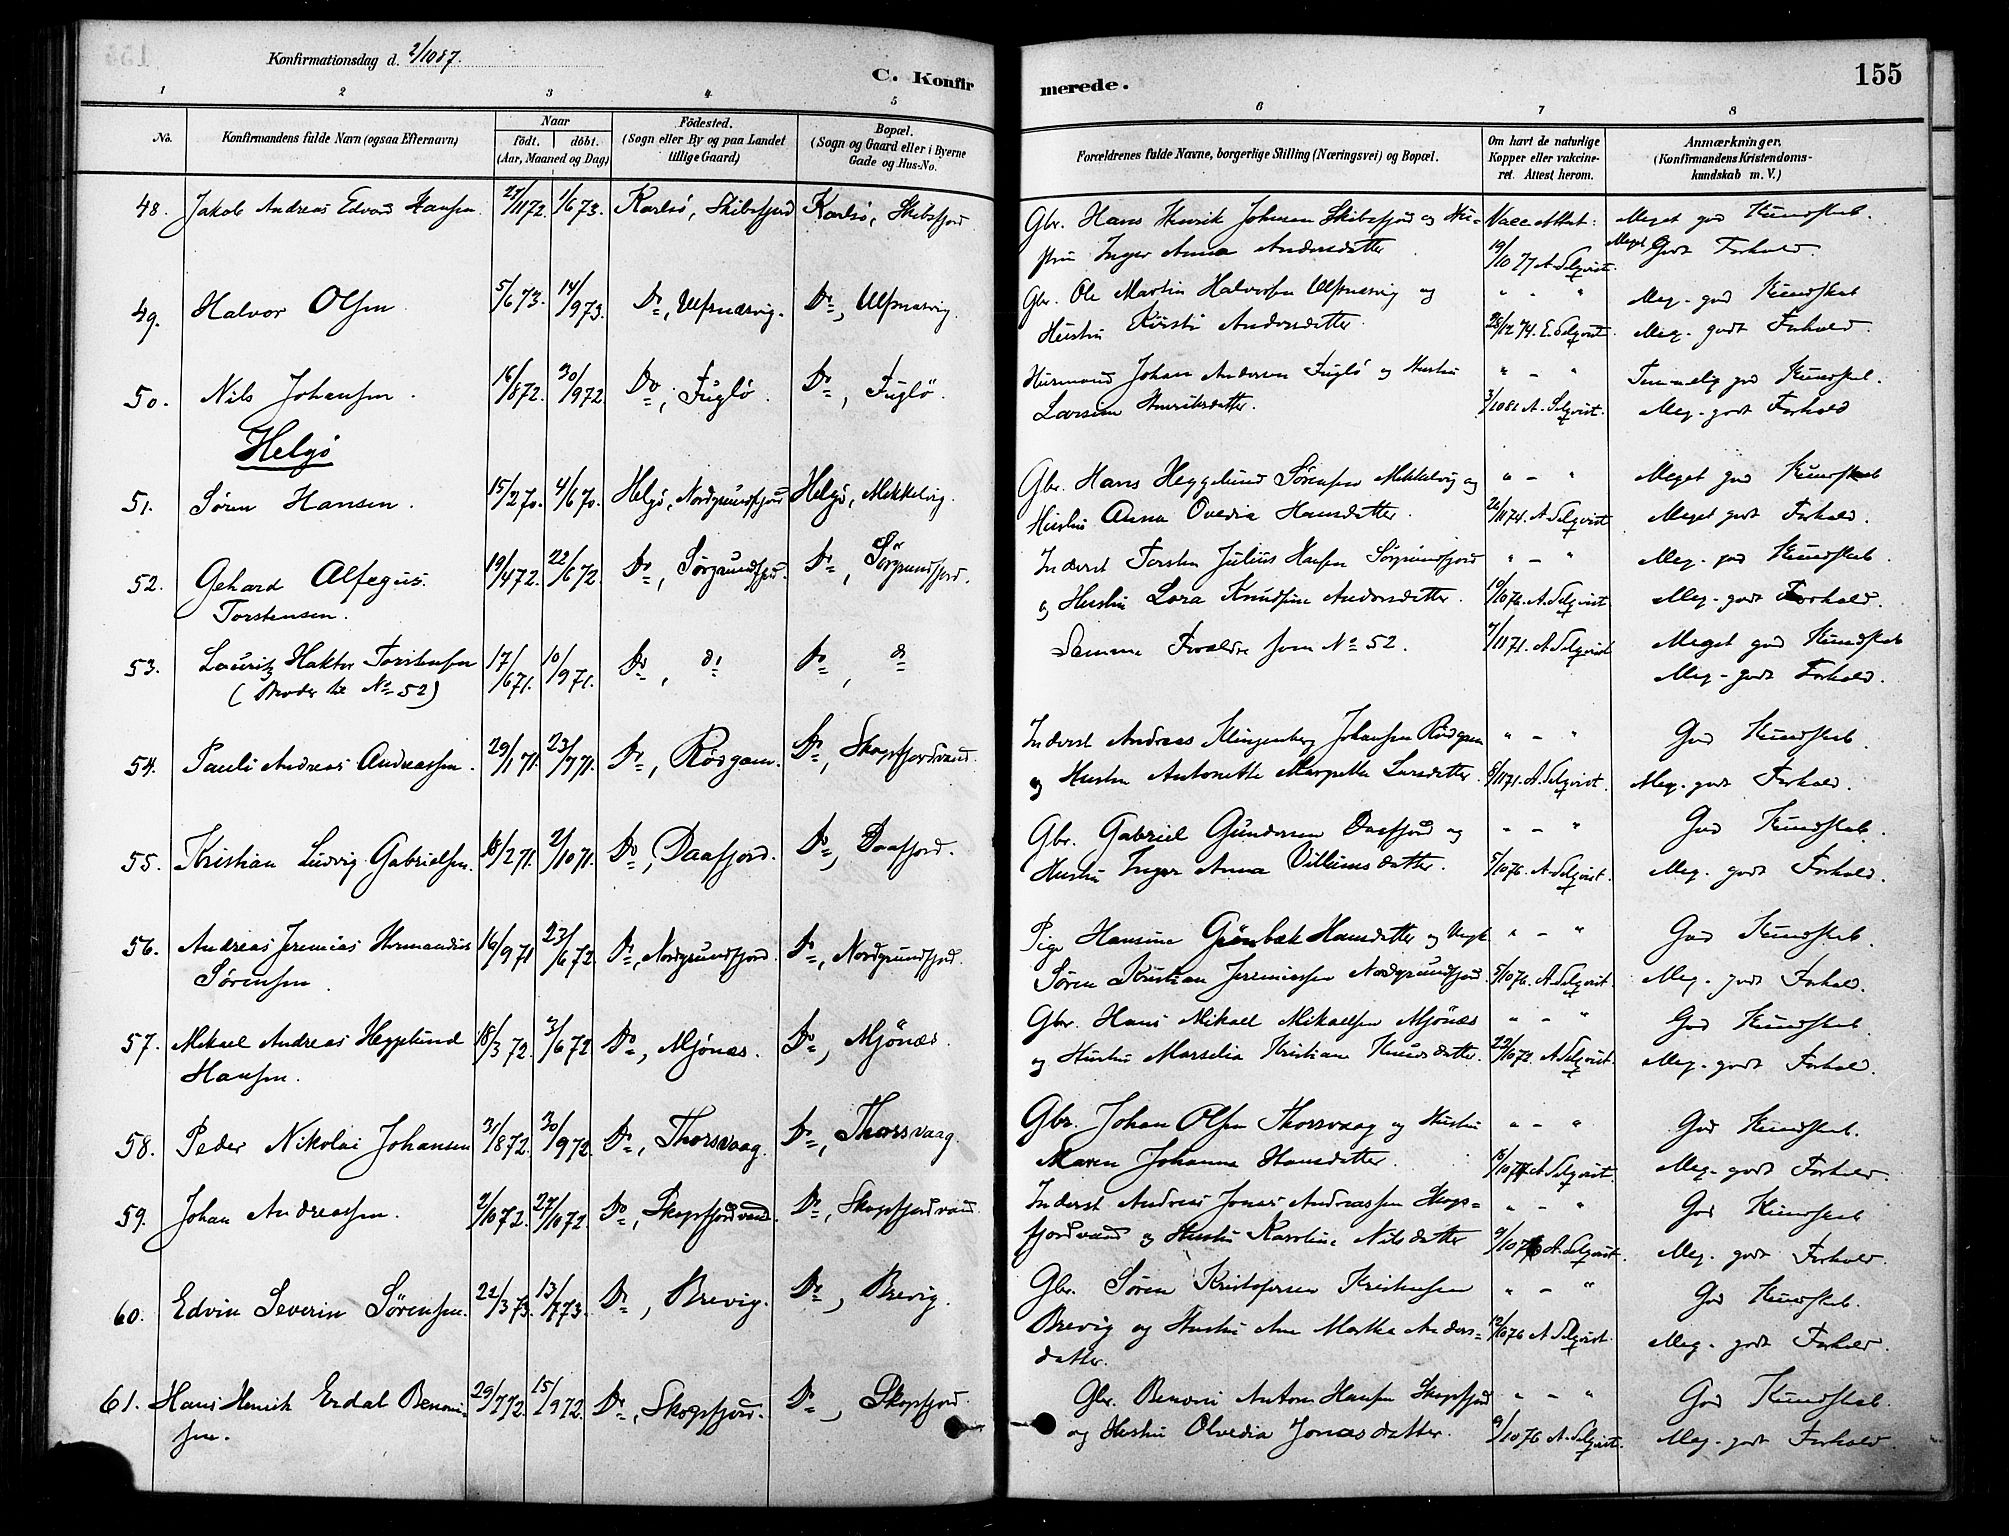 Konfirmationsdag d. 2/10 87.
C. Konfir
merede.
155
1 2 3 4 5 6 7 8
No.
Konfirmandens fulde Navn (ogsaa Efternavn)
Naar
födt. döbt.
(Aar, Maaned og Dag)
Födested.
(Sogn eller By og paa Landet
tillige Gaard)
Bopæl.
(Sogn og Gaard eller i Byerne
Gade og Hus-No.
Forældrenes fulde Navne, borgerlige Stilling (Næringsvei) og Bopæl.
Om havt de naturlige
Kopper eller vakcine-
ret. Attest herom.
Anmærkninger.
(Konfirmandens Kristendoms-
kundskab m. V.)
48. Jakob Andreas Edvard Hansen. 27/11 72. 1/6 73. Karlsö, Skibsfjord Karlsö, Skibsfjord Gbr. Hans Henrik Johnsen Skibsfjord og Hu- Vacc. Attest: Meget god Kundskab.
stru Inger Anna Andersdatter 19/10 77 A. Selqvist. Meget Godt Forhold.
49. Halvor Olsen 5/6 73. 14/9 73. Do, Ulfsnæsvig. Do, Ulfsnæsvig. Gbr. Ole Martin Halvorsen Ulfsnæsvig og " - " Meg. god Kundskab
Hustru Kirsti Andersdatter. 28/12 74. E. Selqvist. Meg. godt Forhold.
50. Nils Johansen. 16/8 72. 30/9 72 Do, Fuglö. Do, Fuglö. Husmand Johan Andersen Fuglö og Hustru " - " Temmelig god Kundskab.
Larsine Henriksdatter. 3/10 81 A. Selqvist. Meg. godt Forhold
Helgö
51. Sören Hansen. 15/2 70. 4/6 70. Helgö, Nordgrundfjord Helgö, Mikkelvig. Gbr. Hans Heggelund Sörensen Mikkelvig og " - " Meget god Kundskab
Hustru Anna Ovedia Hansdatter. 24/11 74. A. Selqvist Meget godt Forhold.
52. Gehard Alfegius 19/4 72. 22/6 72. Do, Sörgrundfjord. Do, Sörgrundfjord. Inderst Torsten Julius Hansen Sörgrundfjord " - " Meg. god Kundskab.
Torstensen. og Hustru Lora Knudsine Andersdatter. 10/10 76. A. Selqvist Meg. godt Forhold.
53. Lauritz Haktor Torstensen 17/6 71. 10/9 71. Do, do Do, do Samme Forældre som No 52. 7/11 71. A. Selqvist Meget god Kundskab
(Broder til No 52) Meg. godt Forhold.
54. Pauli Andreas Andreassen. 29/1 71. 23/7 71. Do, Rödgam. Do, Skogsfjordvand. Inderst Andreas Klingenberg Johansen Rödgam " - " God Kundskab.
og Hustru Antonette Margrethe Larsdatter. 8/11 71. A. Selqvist. Meg. godt Forhold.
55. Kristian Ludvig Gabrielsen. 18/2 71. 2/10 71. Do, Daafjord. Do, Daafjord. Gbr. Gabriel Gundersen Daafjord og " - " God Kundskab.
Hustru Inger Anna Villumsdatter. 5/10 76. A. Selqvist. Meg. godt Forhold.
56. Andreas Jeremias Hermandius 16/9 71 23/6 72. Do, Nordgrundfjord. Do, Nordgrundfjord. Pige Hansine Grönbæk Hansdatter og Ungk. " - " God Kundskab.
Sörensen. Sören Kristian Jeremiassen Nordgrundfjord. 5/10 76. A. Selqvist. Meg. godt Forhold.
57. Mikael Andreas Heggelund 18/3 72. 3/6 72 Do, Mjönæs. Do, Mjönæs. Gbr. Hans Mikael Mikaelsen Mjönæs " - " God Kundskab.
Hansen. og Hustru Marselia Kristian Knudsdatter. 22/10 72. A. Selqvist. Meg. godt Forhold.
58. Peder Nikolai Johansen 31/8 72. 30/9 72. Do, Thorsvaag. Do, Thorsvaag. Gbr. Johan Olsen Thorsvaag og Hustru " - " God Kundskab.
Maren Johanna Hansdatter. A. Selqvist. Meg. godt Forhold.
59. Johan Andreassen. 2/10 72. 27/10 72 Do, Skogsfjordvand. Do, Skogsfjordvand. Inderst Andreas Jonas Andreassen Skogs- " - " God Kundskab
fjordvand og Hustru Karoline Nilsdatter 9/10 76 A. Selqvist. Meg. godt Forhold.
60. Edvin Severin Sörensen. 22/3 73. 13/7 73. Do, Brevig. Do, Brevig. Gbr. Sören Kristofersen Kristiansen " - " God Kundskab.
Brevig og Hustru Ane Martha Anders- 12/10 76 A. Selqvist. Meg. godt Forhold.
datter.
61. Hans Henrik Erdal Benoni- 29/7 72. 15/9 72. Do, Skogsfjord. Do, Skogsfjord. Gbr. Benoni Anton Hansen Skogsfjord " - " God Kundskab.
sen. og Hustru Olvedia Jonasdatter. 9/10 76 A. Selqvist. Meg. godt Forhold.